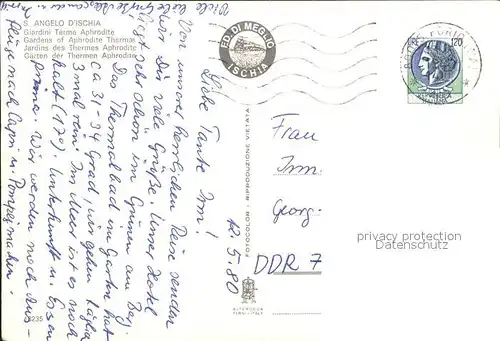 S. ANGELO D'ISCHIA
Giardini Terme Aphrodite
Gardens of Aphrodite Thermae
Jardins des Thermes Aphrodite
Gärten der Thermen Aphrodite
ED. DI MEGLIO
ISCHIA
120
12.5.80
Liebe Tante Irm!
Von unserer herrlichen Reise senden
wir Dir viele Grüße. Unser Hotel
liegt sehr schön im Grünen am Berg.
Das Thermalbad im Garten hat
ca 31-34 Grad, wir gehen täglich
3 mal rein. Im Meer ist es noch
kalt (17°). Unterkunft u. Essen
prima. Wir werden noch Aus-
flüge nach Capri u. Pompei machen.
Viele
liebe Grüße
FOTOCOLOR - RIPRODUZIONE VIETATA
Frau
Irm.
Georg-
DDR 7
privacy protection
Datenschutz